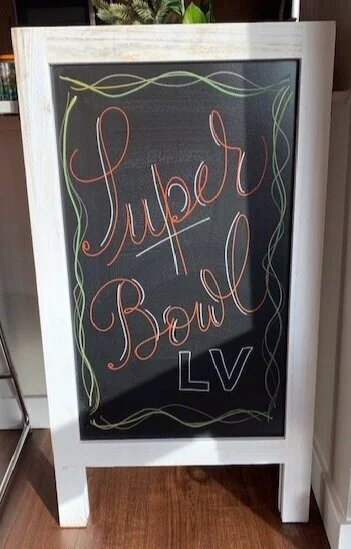 Super
Bowl
LV